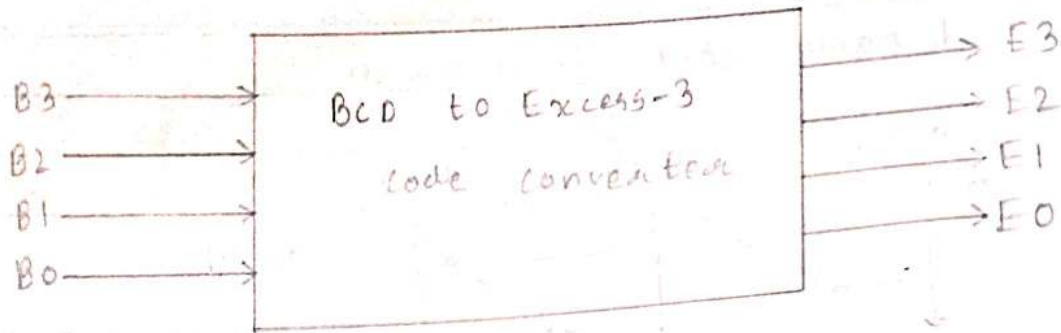 B3
B2
B1
B0
BCD to Excess-3
code converter
E3
E2
E1
E0